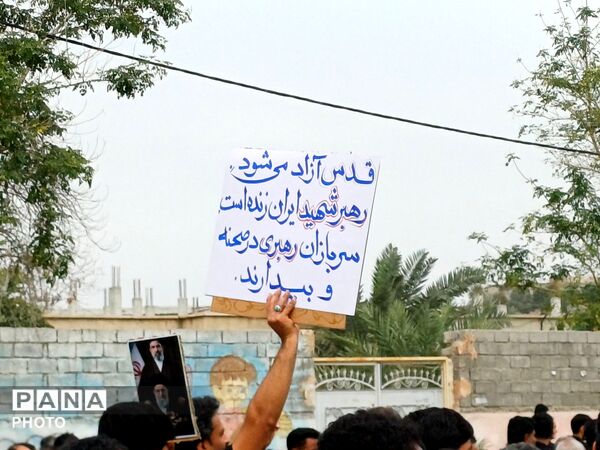 قدس آزاد می‌شود.
رهبر شهید ایران زنده است.
سربازان رهبری در صحنه
و بیدارند.
PANA
PHOTO